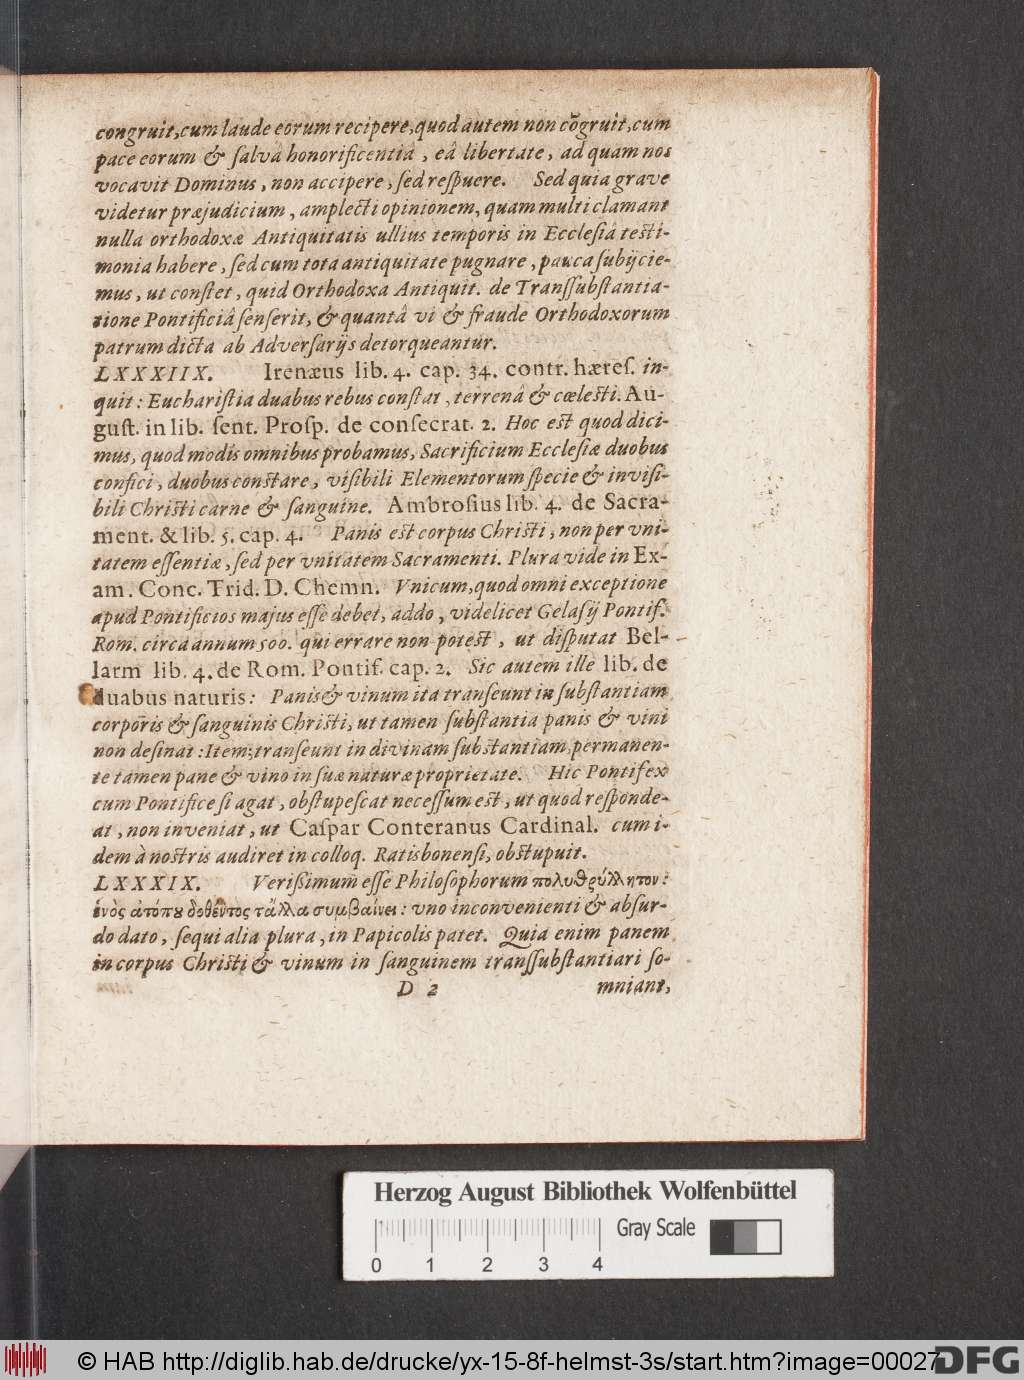 congruit, cum laude eorum recipere, quod autem non cōgruit, cum
pace eorum & salvâ honorificentiâ, eâ libertate, ad quam nos
vocavit Dominus, non accipere, sed respuere. Sed quia grave
videtur præjudicium, amplecti opinionem, quam multi clamant
nulla orthodoxæ Antiquitatis ullius temporis in Ecclesiâ testi-
monia habere, sed cum tota antiquitate pugnare, pauca subijcie-
mus, ut constet, quid Orthodoxa Antiquit. de Transsubstantia-
tione Pontificiâ senserit, & quantâ vi & fraude Orthodoxorum
patrum dicta ab Adversarijs detorqueantur.
LXXXIIX. Irenæus lib. 4. cap. 34. contr. hæres. in-
quit: Eucharistia duabus rebus constat, terrenâ & cœlesti. Au-
gust. in lib. sent. Prosp. de consecrat. 2. Hoc est quod dici-
mus, quod modis omnibus probamus, Sacrificium Ecclesiæ duobus
confici, duobus constare, visibili Elementorum specie & invisi-
bili Christi carne & sanguine. Ambrosius lib. 4. de Sacra-
ment. & lib. 5. cap. 4. Panis est corpus Christi, non per vni-
tatem essentiæ, sed per vnitatem Sacramenti. Plura vide in Ex-
am. Conc. Trid. D. Chemn. Vnicum, quod omni exceptione
apud Pontificios majus esse debet, addo, videlicet Gelasij Pontif.
Rom. circa annum 500. qui errare non potest, ut disputat Bel-
larm lib. 4. de Rom. Pontif. cap. 2. Sic autem ille lib. de
duabus naturis: Panis & vinum ita transeunt in substantiam
corporis & sanguinis Christi, ut tamen substantia panis & vini
non desinat: Item; transeunt in divinam substantiam, permanen-
te tamen pane & vino in suæ naturæ proprietate. Hic Pontifex
cum Pontifice si agat, obstupescat necessum est, ut quod responde-
at, non inveniat, ut Caspar Conteranus Cardinal. cum i-
dem à nostris audiret in colloq. Ratisbonensi, obstupuit.
LXXXIX. Verissimum esse Philosophorum πολυθρύλλητον:
ἑνὸς ἀτόπου δοθέντος τἄλλα συμβαίνει: uno inconvenienti & absur-
do dato, sequi alia plura, in Papicolis patet. Quia enim panem
in corpus Christi & vinum in sanguinem transsubstantiari so-
D 2 mniant,
Herzog August Bibliothek Wolfenbüttel
Gray Scale
0 1 2 3 4
© HAB http://diglib.hab.de/drucke/yx-15-8f-helmst-3s/start.htm?image=00027
DFG